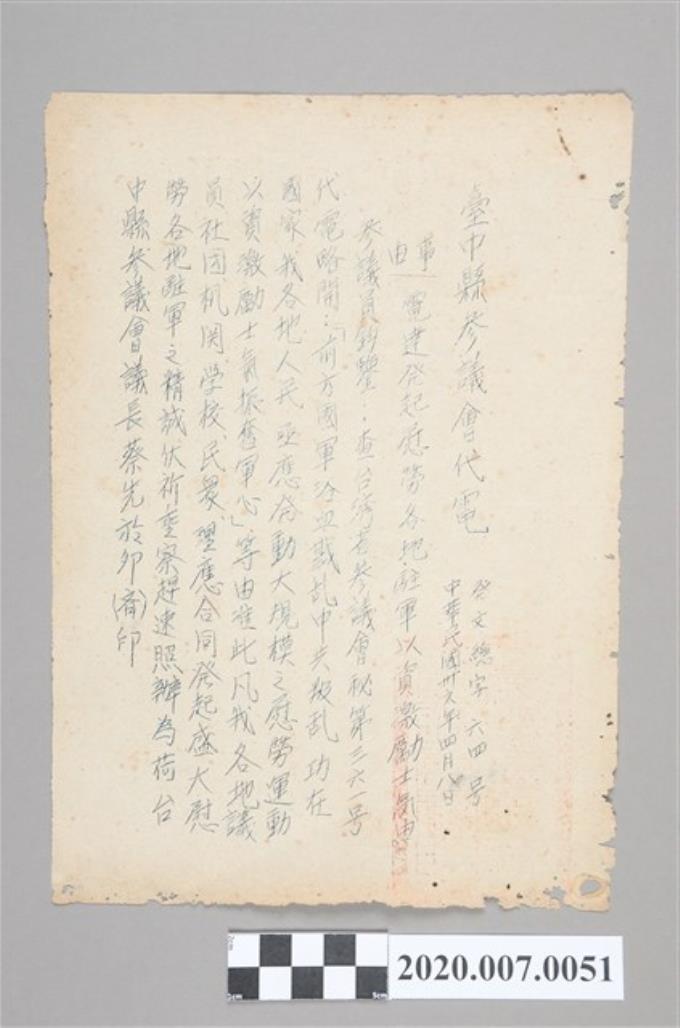 臺中縣參議會代電
發文總字 六四号
中華民國卅六年四月八日
事由 電達発起慰勞各地駐軍以資激勵士氣由
参議員鈞鑒：查台湾省参議會秘第三六一号
代電略開：「前方國軍浴血戡乱中共叛乱功在
國家我各地人民亟應発動大規模之慰勞運動
以資激勵士氣振奮軍心」等由准此凡我各地議
員社团机関、学校、民衆、理應合同発起盛大慰
勞各地駐軍之精誠伏祈垂察趕速照辦為荷台
中縣参議會議長蔡先於卯(齊)印
2020.007.0051